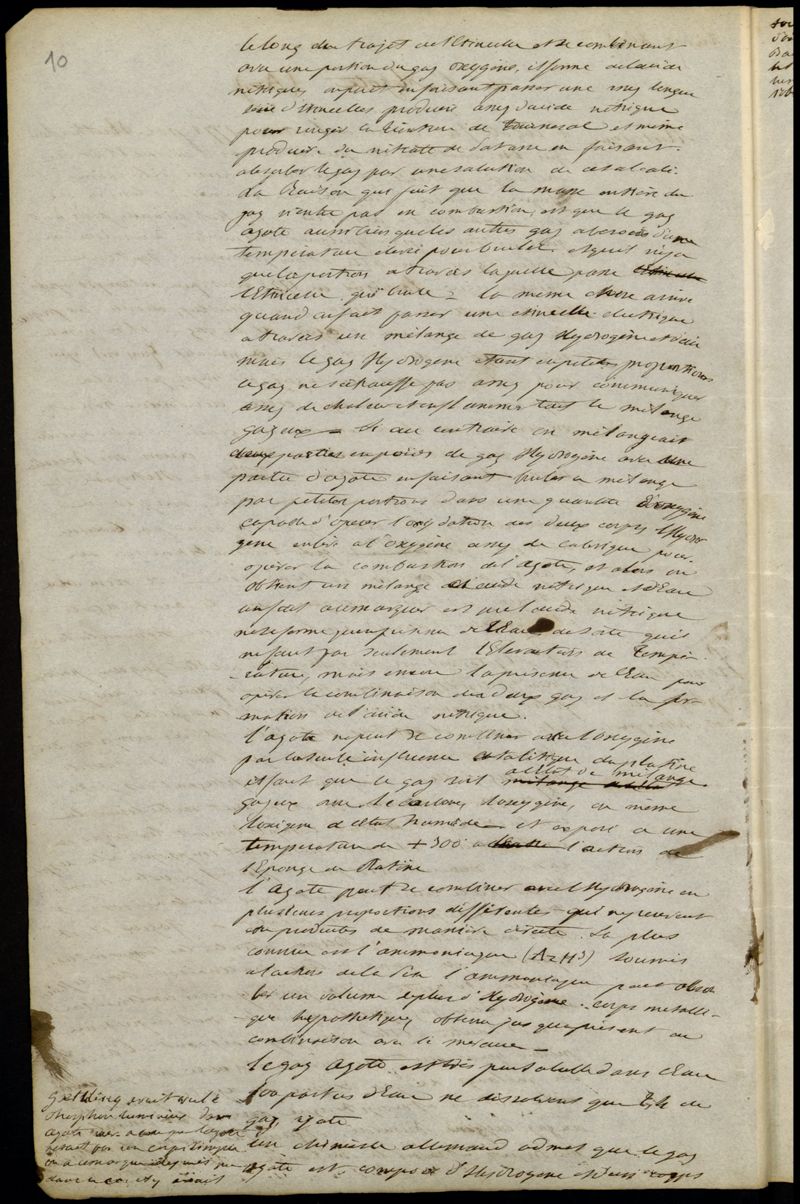 10
le long du trajet de l'Etincelle et se combinant
avec une portion du gaz oxygène, il forme de l'acide
nitrique, on peut en faisant passer une assez longue
série d'étincelles produire assez d'acide nitrique
pour rougir la teinture de tournesol et même
produire du nitrate de potasse en faisant
absorber le gaz par une solution de cet alcali.
La Raison qui fait que la masse entière du
gaz n'entre pas en combustion, est que le gaz
azote ainsi que les autres gaz a besoin d'une
température élevée pour bruler et qu'il n'y a
que la portion à travers laquelle passe
l'Etincelle qui brule = la même chose arrive
quand on fait passer une étincelle électrique
à travers un mélange de gaz Hydrogène et d'air
mais le gaz Hydrogène étant en petites proportions
le gaz ne s'échauffe pas assez pour communiquer
assez de chaleur et enflammer tout le mélange
gazeux = si au contraire on mélangeait
deux parties en poids de gaz Hydrogène avec une
partie d'azote en faisant bruler ce mélange
par petites portions dans une quantité d'oxygène
capable d'opérer l'oxydation des deux corps l'Hydro
gène enlève à l'oxygène assez de calorique pour
opérer la combustion de l'azote, et alors on
obtient un mélange d'acide nitrique et d'Eau
un fait à remarquer est que l'acide nitrique
ne se forme qu'en présence de l'Eau de sorte qu'il
ne faut pas seulement l'Elevation de tempé
-rature, mais encore la présence de l'Eau pour
opérer la combinaison des deux gaz et la for
mation de l'acide nitrique.
l'azote ne peut se combiner avec l'oxygène
par la seule influence catalitique du platine
il faut que le gaz soit à l'état de mélange
gazeux avec le carbone, l'oxygène, ou même
l'oxigène à l'état humide et exposé à une
température de +300° à l'action de
l'Eponge de Platine
l'Azote peut se combiner avec l'Hydrogène en
plusieurs proportions différentes qui ne peuvent
être produites de manière directe. La plus
connue est l'ammoniaque (AzH3) soumis
à l'action de la pile l'ammoniaque peut absor
ber un volume de plus d'Hydrogène. corps métalli-
que hypothétique, obtenu jusqu'à présent en
combinaison avec le mercure =
le gaz Azote, est très peu soluble dans l'Eau
100 parties d'Eau ne dissolvent que de
gaz azote
un chimiste allemand admet que le gaz
azote est composé d'Hydrogène et d'un corps
Gottling avait brulé
Phosphore lumineux dans
azote
était un corps simple
on a remarqué depuis que
dans ce cas il y avait